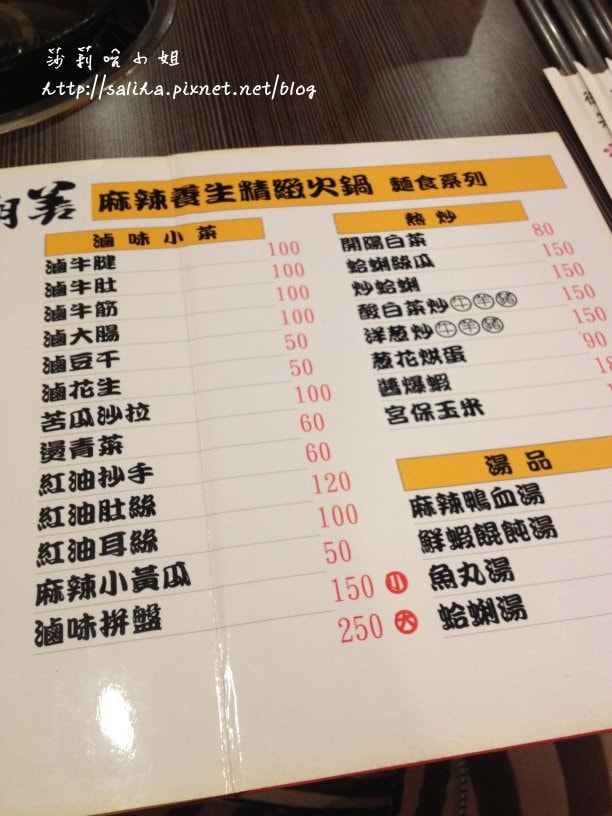 莎莉哈小姐
http://saliha.pixnet.net/blog
美 麻辣養生精緻火鍋 麵食系列
滷味小菜
滷牛腱 100
滷牛肚 100
滷牛筋 100
滷大腸 100
滷豆干 50
滷花生 50
苦瓜沙拉 100
燙青菜 60
紅油抄手 60
紅油肚絲 120
紅油耳絲 100
麻辣小黃瓜 50
滷味拼盤 150 小
250 大
熱炒
開陽白菜 80
蛤蜊絲瓜 150
炒蛤蜊 150
酸白菜炒牛羊豬 150
洋蔥炒牛羊豬 150
蔥花烘蛋 90
醬爆蝦
宮保玉米
湯品
麻辣鴨血湯
鮮蝦餛飩湯
魚丸湯
蛤蜊湯